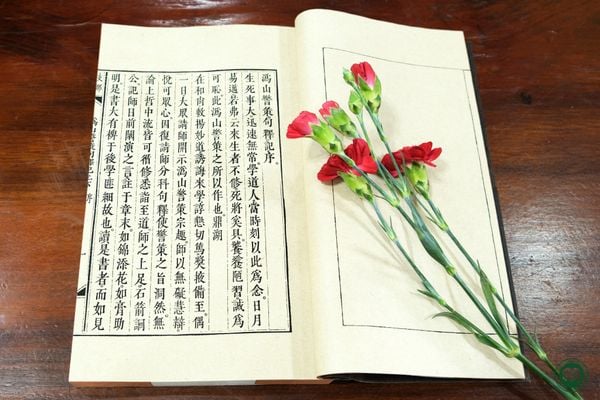 溈山警策句釋記序
生死事大迅速無常學道人當時刻以此為念日月
易邁若弗云來生者不修死將奚具陋習誠為
可恥此溈山警策之所以作也鼎湖
在和尚敭揚妙道誘誨來學諄懇切篤獎披備至偶
一日大眾請師開示溈山警策宗趣師以無礙慈辯
悅可眾心因復請師分科句釋使警策之旨洞然無
論上哲中流皆可稱修悉詣至道師之上足石箭訶
公記師日前闡演之言註于章末如錦添花如膏助
明是書大有裨于後學匪細故也讀是書者而如見